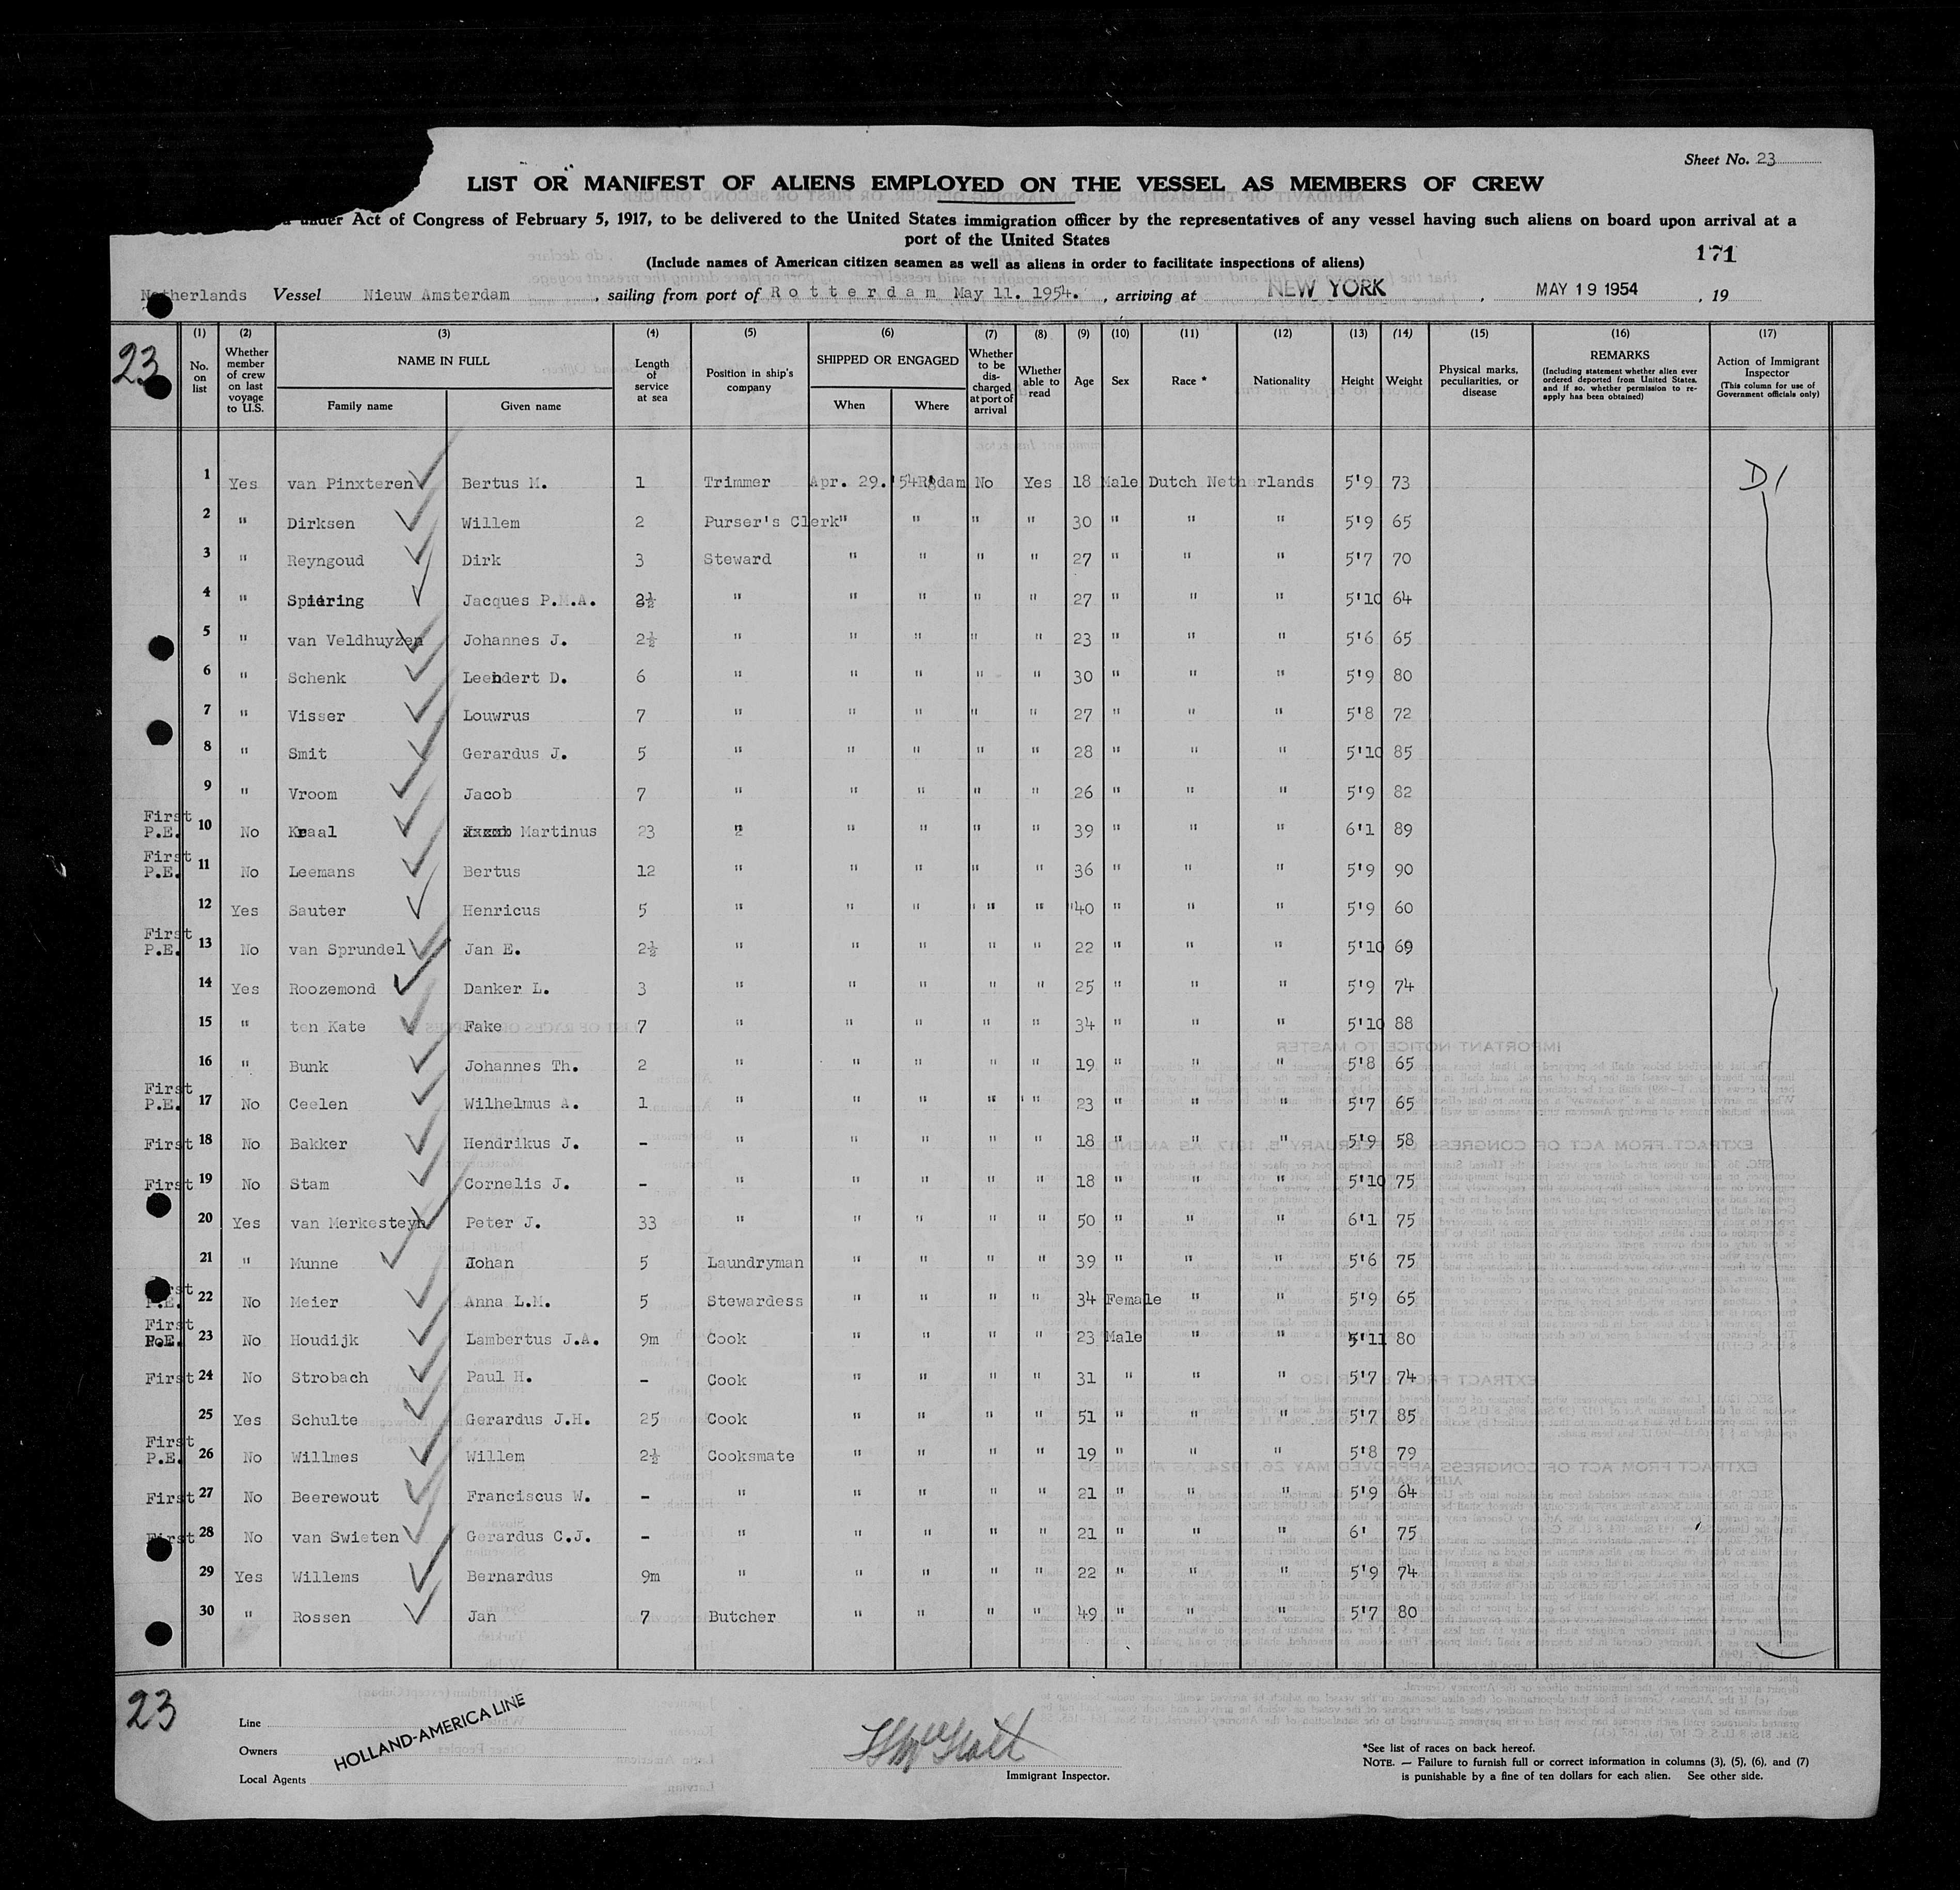 Sheet No. 23
LIST OR MANIFEST OF ALIENS EMPLOYED ON THE VESSEL AS MEMBERS OF CREW
under Act of Congress of February 5, 1917, to be delivered to the United States immigration officer by the representatives of any vessel having such aliens on board upon arrival at a
port of the United States
171
(Include names of American citizen seamen as well as aliens in order to facilitate inspections of aliens)
Netherlands Vessel Nieuw Amsterdam , sailing from port of Rotterdam May 11. 1954. , arriving at NEW YORK , MAY 19 1954 , 19
23
(1) (2) (3) (4) (5) (6) (7) (8) (9) (10) (11) (12) (13) (14) (15) (16) (17)
No. on list | Whether member of crew on last voyage to U.S. | NAME IN FULL Family name Given name | Length of service at sea | Position in ship's company | SHIPPED OR ENGAGED When Where | Whether to be discharged at port of arrival | Whether able to read | Age | Sex | Race * | Nationality | Height | Weight | Physical marks, peculiarities, or disease | REMARKS (Including statement whether alien ever ordered deported from United States, and if so, whether permission to re-apply has been obtained) | Action of Immigrant Inspector (This column for use of Government officials only)
1 Yes van Pinxteren Bertus M. 1 Trimmer Apr. 29.'54 R'dam No Yes 18 Male Dutch Netherlands 5'9 73 D1
2 " Dirksen Willem 2 Purser's Clerk " " " " 30 " " " 5'9 65
3 " Reyngoud Dirk 3 Steward " " " " 27 " " " 5'7 70
4 " Spiering Jacques P.M.A. 2½ " " " " " 27 " " " 5'10 64
5 " van Veldhuyzen Johannes J. 2½ " " " " " 23 " " " 5'6 65
6 " Schenk Leendert D. 6 " " " " " 30 " " " 5'9 80
7 " Visser Louwrus 7 " " " " " 27 " " " 5'8 72
8 " Smit Gerardus J. 5 " " " " " 28 " " " 5'10 85
9 " Vroom Jacob 7 " " " " " 26 " " " 5'9 82
First P.E. 10 No Kraal Martinus 23 " " " " " 39 " " " 6'1 89
First P.E. 11 No Leemans Bertus 12 " " " " " 36 " " " 5'9 90
12 Yes Sauter Henricus 5 " " " " " " "40 " " " 5'9 60
First P.E. 13 No van Sprundel Jan E. 2½ " " " " " 22 " " " 5'10 69
14 Yes Roozemond Danker L. 3 " " " " " 25 " " " 5'9 74
15 " ten Kate Fake 7 " " " " " 34 " " " 5'10 88
16 " Bunk Johannes Th. 2 " " " " " 19 " " " 5'8 65
First P.E. 17 No Ceelen Wilhelmus A. 1 " " " " " " 23 " " " 5'7 65
First 18 No Bakker Hendrikus J. - " " " " " 18 " " " 5'9 58
First 19 No Stam Cornelis J. - " " " " " 18 " " " 5'10 75
20 Yes van Merkesteyn Peter J. 33 " " " " " 50 " " " 6'1 75
21 " Munne Johan 5 Laundryman " " " " 39 " " " 5'6 75
First P.E. 22 No Meier Anna L.M. 5 Stewardess " " " " 34 Female " " 5'9 65
First P.E. 23 No Houdijk Lambertus J.A. 9m Cook " " " " 23 Male " " 5'11 80
First 24 No Strobach Paul H. - Cook " " " " 31 " " " 5'7 74
25 Yes Schulte Gerardus J.H. 25 Cook " " " " 51 " " " 5'7 85
First P.E. 26 No Willmes Willem 2½ Cooksmate " " " " 19 " " " 5'8 79
First 27 No Beerewout Franciscus W. - " " " " " 21 " " " 5'9 64
First 28 No van Swieten Gerardus C.J. - " " " " " 21 " " " 6' 75
29 Yes Willems Bernardus 9m " " " " " 22 " " " 5'9 74
30 " Rossen Jan 7 Butcher " " " " 49 " " " 5'7 80
23
Line
Owners HOLLAND-AMERICA LINE
Local Agents
Immigrant Inspector.
*See list of races on back hereof.
NOTE. — Failure to furnish full or correct information in columns (3), (5), (6), and (7)
is punishable by a fine of ten dollars for each alien. See other side.